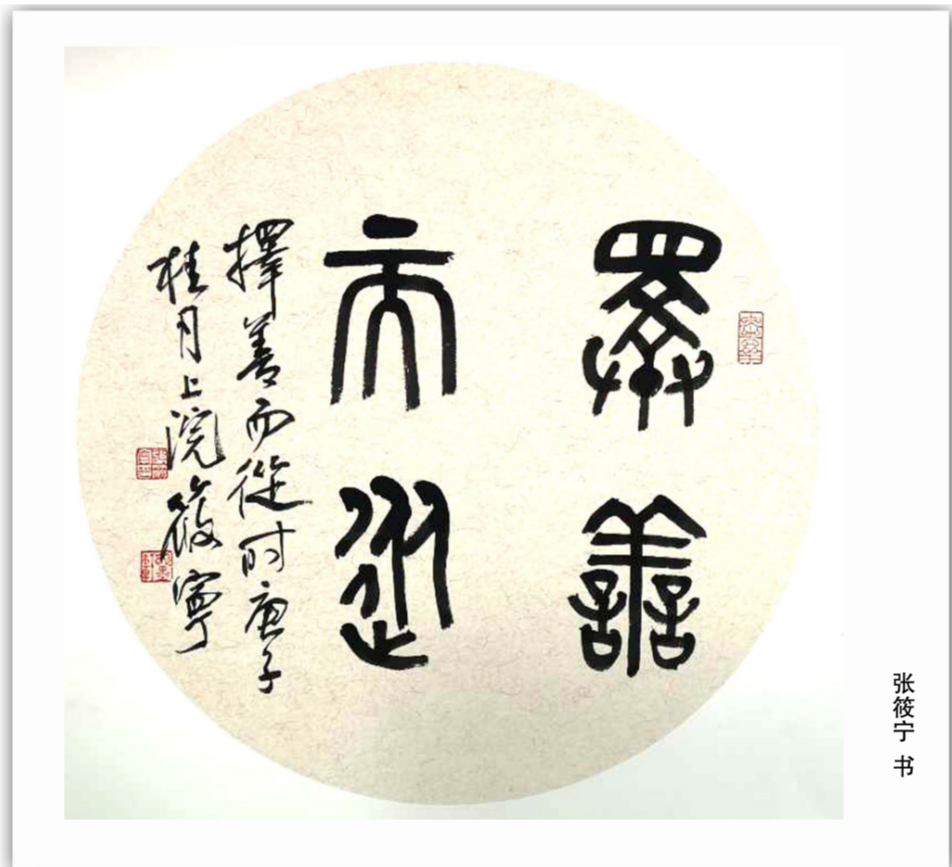 睪善
而從
擇善而從时庚子
桂月上浣筱寧
张筱宁 书